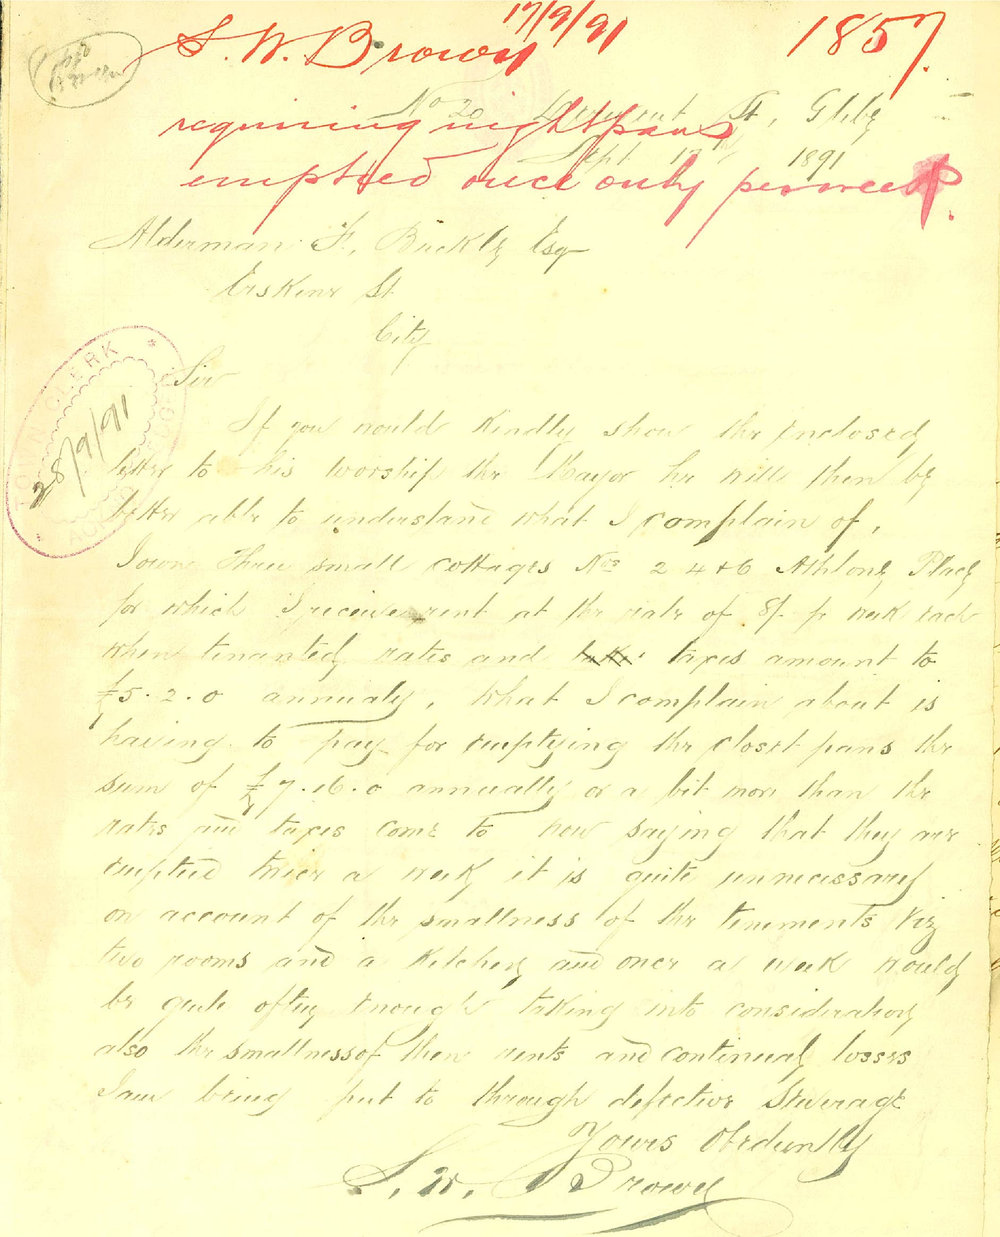 17/9/91
S. W. Brown 1857.
requiring nightpans
emptied once only per week.
No 20 Derwent St, Glebe
Sept 17th 1891
Alderman F. Buckle Esq
Erskine St
City
TOWN CLERK
28/9/91
Sir
If you would kindly show the enclosed
letter to his worship the Mayor he will then be
better able to understand what I complain of,
I own three small cottages Nos 2 4 & 6 Athlone Place
for which I receive rent at the rate of 8/- pr week each
when tenanted rates and taxes amount to
£5.2.0 annualy, what I complain about is
having to pay for emptying the closet pans the
sum of £7.16.0 annually or a bit more than the
rates and taxes come to now saying that they are
emptied twice a week it is quite unnecessary
on account of the smallness of the tenements viz
two rooms and a kitchen and once a week would
be quite often enough taking into consideration
also the smallness of them rents and continual losses
I am being put to through defective Sewerage
Yours Obediently
S. W. Brown